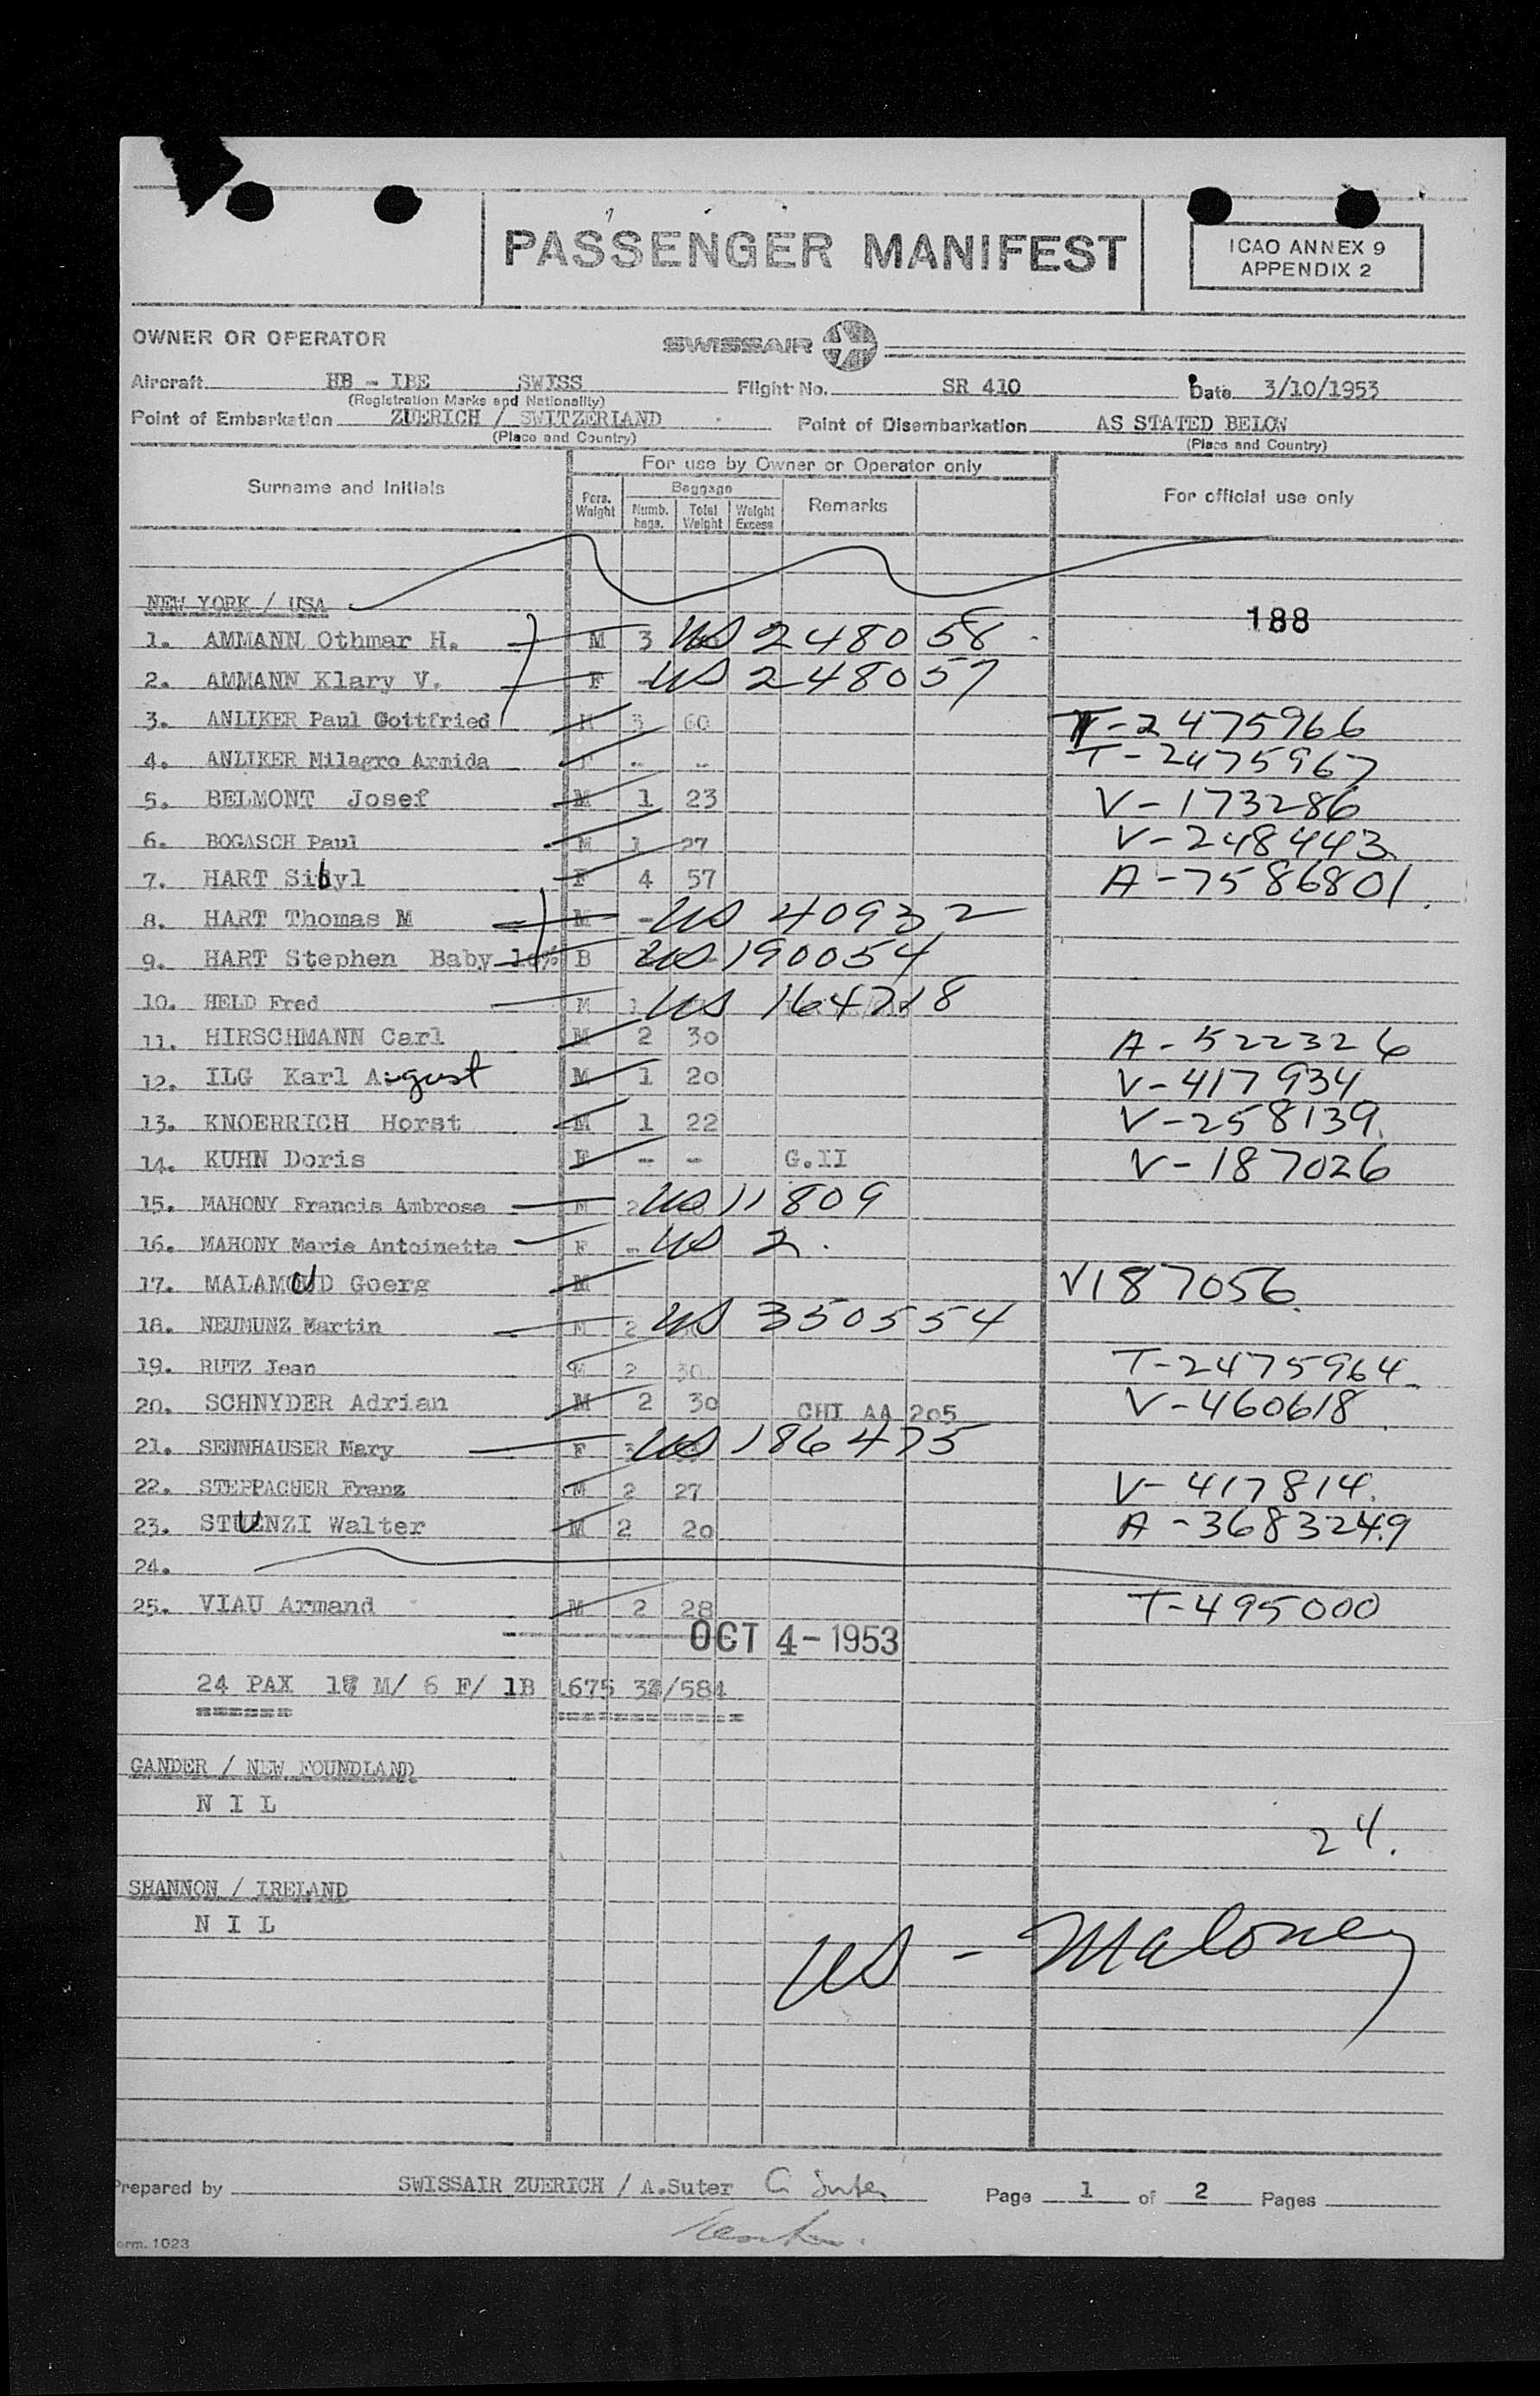 PASSENGER MANIFEST
ICAO ANNEX 9
APPENDIX 2
OWNER OR OPERATOR SWISSAIR
Aircraft HB - IBE SWISS Flight No. SR 410 Date 3/10/1953
(Registration Marks and Nationality)
Point of Embarkation ZUERICH / SWITZERLAND Point of Disembarkation AS STATED BELOW
(Place and Country) (Place and Country)
For use by Owner or Operator only
Surname and Initials Pers. Weight Baggage Numb. bags. Total Weight Weight Excess Remarks For official use only
NEW YORK / USA 188
1. AMMANN Othmar H. M 3 US 248058
2. AMMANN Klary V. F - US 248057
3. ANLIKER Paul Gottfried M 3 60 T-2475966
4. ANLIKER Milagro Armida F - - T-2475967
5. BELMONT Josef M 1 23 V-173286
6. BOGASCH Paul M 1 27 V-248443
7. HART Sibyl F 4 57 A-7586801
8. HART Thomas M M - US 40932
9. HART Stephen Baby 10% B US 190054
10. HELD Fred M 1 US 164718
11. HIRSCHMANN Carl M 2 30 A-522326
12. ILG Karl August M 1 20 V-417934
13. KNOERRICH Horst M 1 22 V-258139
14. KUHN Doris F - - G.II V-187026
15. MAHONY Francis Ambrose M 2 US 11809
16. MAHONY Marie Antoinette F - US 2.
17. MALAMOUD Goerg M V187056
18. NEUMUNZ Martin M 2 US 350554
19. RUTZ Jean M 2 30 T-2475964
20. SCHNYDER Adrian M 2 30 CHI AA 205 V-460618
21. SENNHAUSER Mary F 3 US 186475
22. STEPPACHER Franz M 2 27 V-417814
23. STUENZI Walter M 2 20 A-3683249
24.
25. VIAU Armand M 2 28 T-495000
OCT 4-1953
24 PAX 17 M/ 6 F/ 1B 1675 /584
GANDER / NEW FOUNDLAND
N I L
24.
SHANNON / IRELAND
N I L
US - Maloney
Prepared by SWISSAIR ZUERICH / A.Suter A Suter Page 1 of 2 Pages
orm. 1023